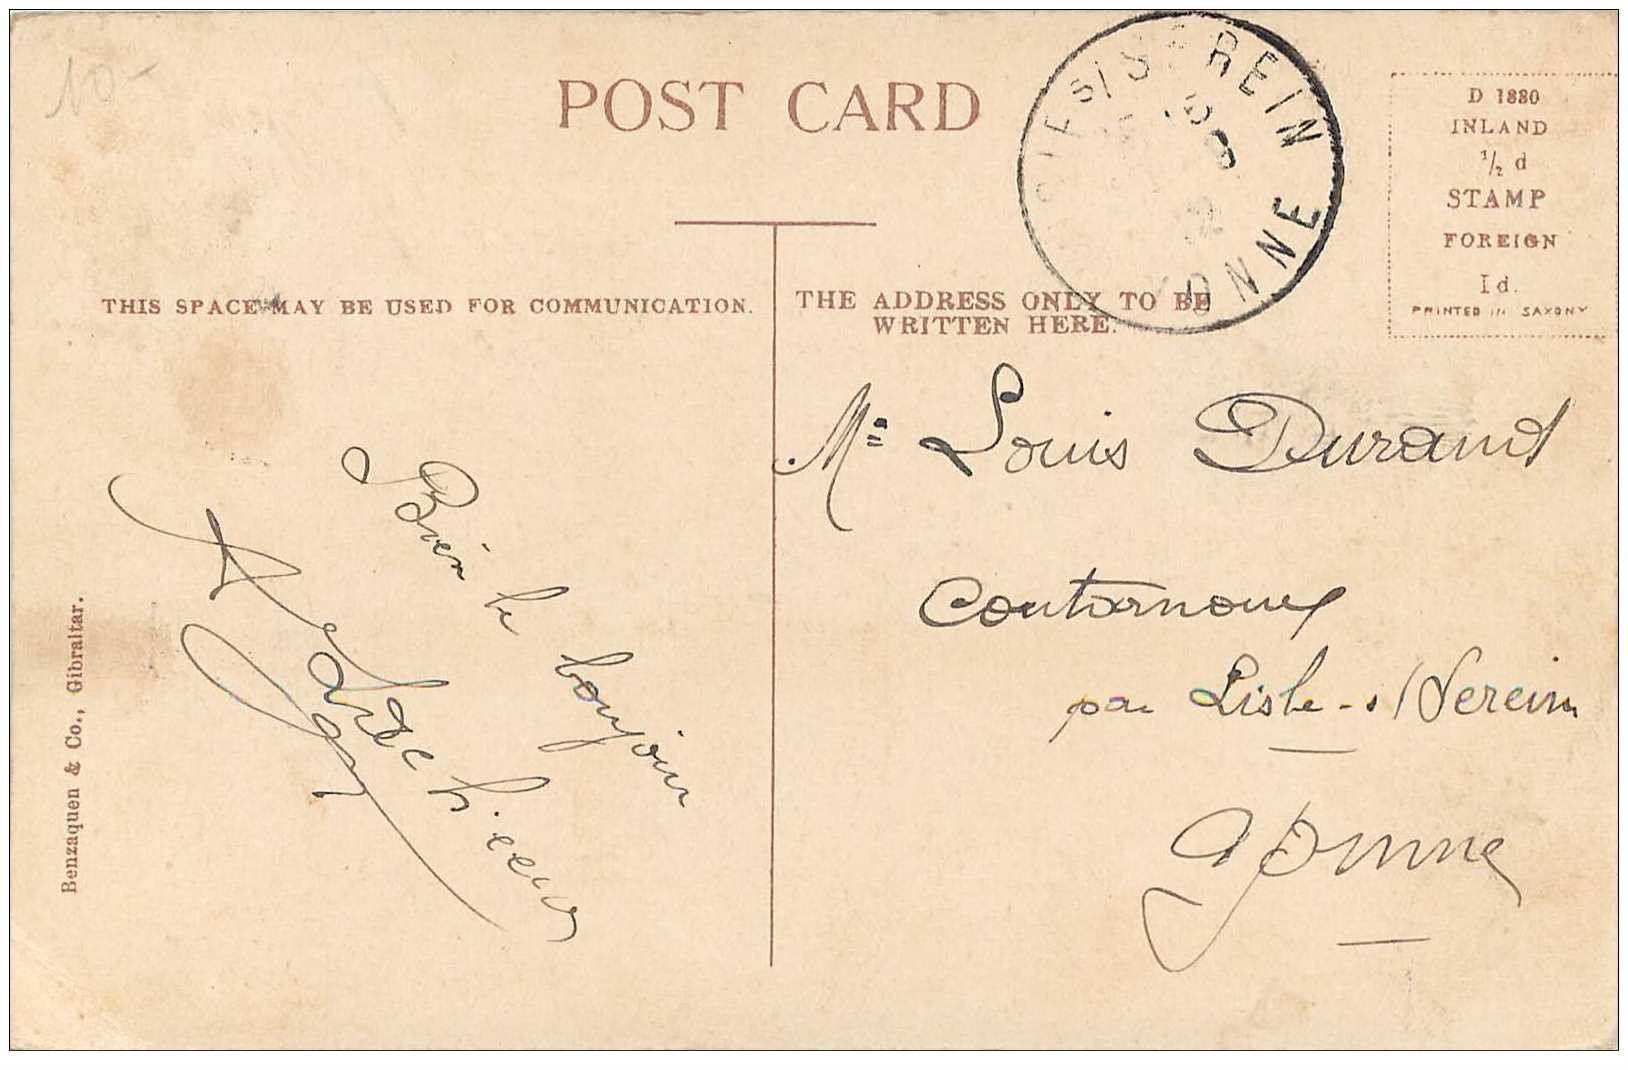 10-
POST CARD
ISLE S/ SEREIN
YONNE
D 1880
INLAND
1/2 d
STAMP
FOREIGN
1d.
PRINTED IN SAXONY
THIS SPACE MAY BE USED FOR COMMUNICATION.
THE ADDRESS ONLY TO BE
WRITTEN HERE.
Mr Louis Durand
Coutarnoux
par L'isle-s/Serein
Yonne
Bien le bonjour
Benzaquen & Co., Gibraltar.